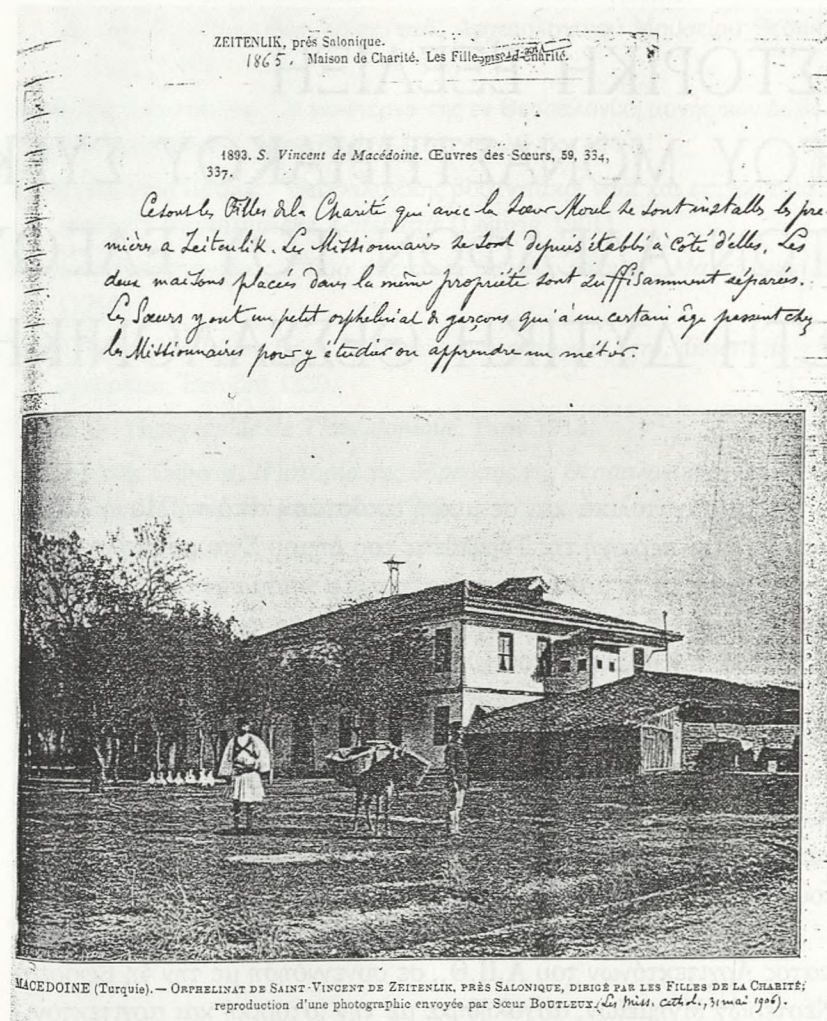 ZEITENLIK, près Salonique.
1865. Maison de Charité. Les Filles de la Charité.
1893. S. Vincent de Macédoine. Œuvres des Sœurs, 59, 334,
337.
Ce sont les Filles de la Charité qui avec la Sœur Morel se sont installés les pre
mières a Zeitenlik. Les Missionnaires se sont depuis établis à côté d'elles. Les
deux maisons placées dans la même propriété sont suffisamment séparées.
Les Sœurs y ont un petit orphelinat de garçons qui à un certain âge passent chez
les Missionnaires pour y étudier ou apprendre un métier.
MACEDOINE (Turquie). — ORPHELINAT DE SAINT-VINCENT DE ZEITENLIK, PRÈS SALONIQUE, DIRIGÉ PAR LES FILLES DE LA CHARITÉ;
reproduction d'une photographie envoyée par Sœur BOUTLEUX. (Les Miss. Cathol., 31 mai 1906).